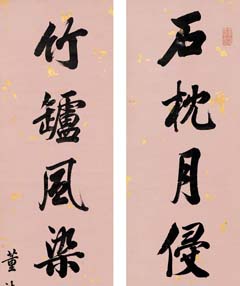 石枕月侵
竹罏風染
董